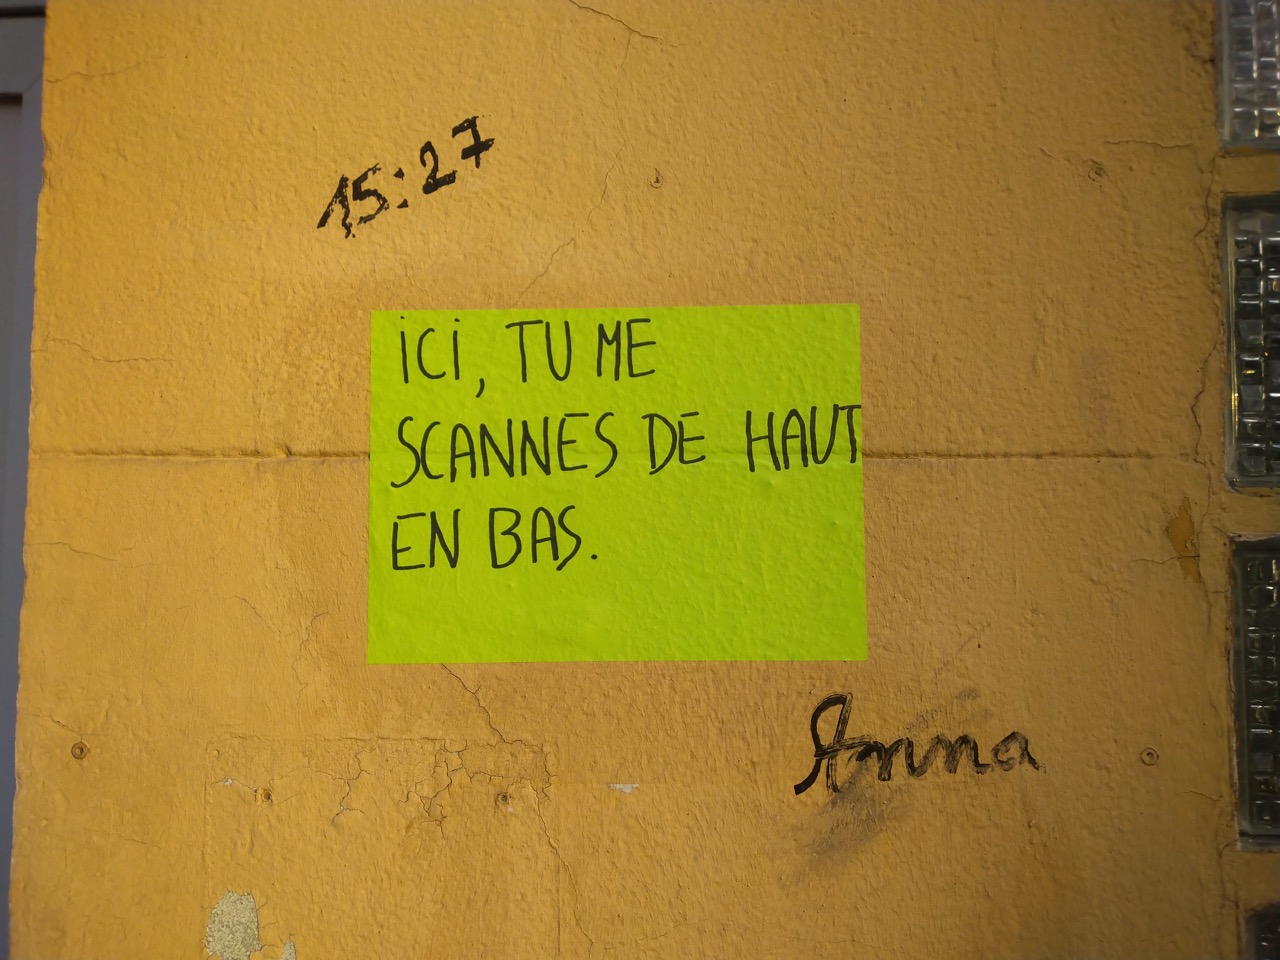 15:27
iCi, TU ME
SCANNES DE HAUT
EN BAS.
Anna